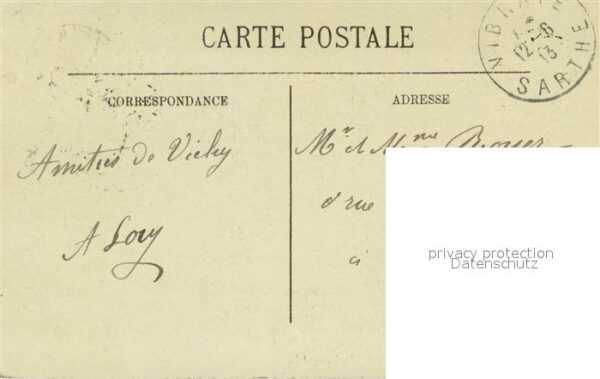 CARTE POSTALE
VIBRAYE
12-6
13
SARTHE
CORRESPONDANCE
ADRESSE
Amitiés de Vichy
A Lory
Mr et Mme Royer
rue
à
privacy protection
Datenschutz